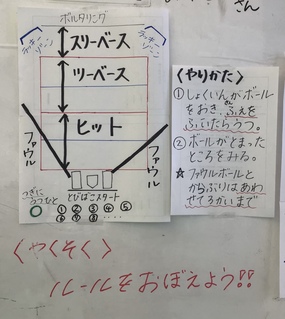 さん
ボルタリング
ラッキーゾーン
ラッキーゾーン
スリーベース
ツーベース
ヒット
ファウル
ファウル
つぎにうつひと
とびばこスタート
① ② ③ ④ ⑤
⑥ ⑦ ⑧
〈やりかた〉
①しょくいんがボール
をおき、ふえを
ふいたらうつ。
②ボールがとまった
ところをみる。
☆ファウルボールと
からぶりはあわ
せて3かいまで
〈やくそく〉
ルールをおぼえよう!!